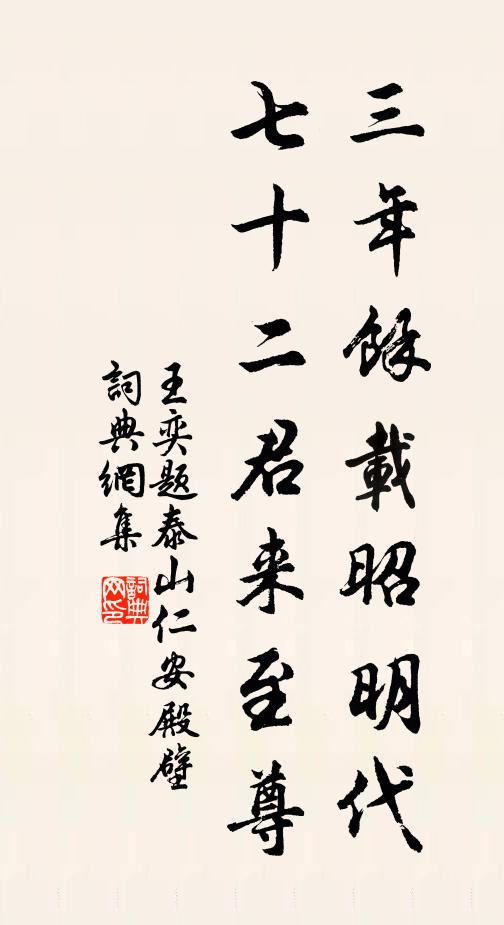 三年餘載昭明代
七十二君来至尊
王奕題泰山仁安殿壁
詞典網集
詞典網印